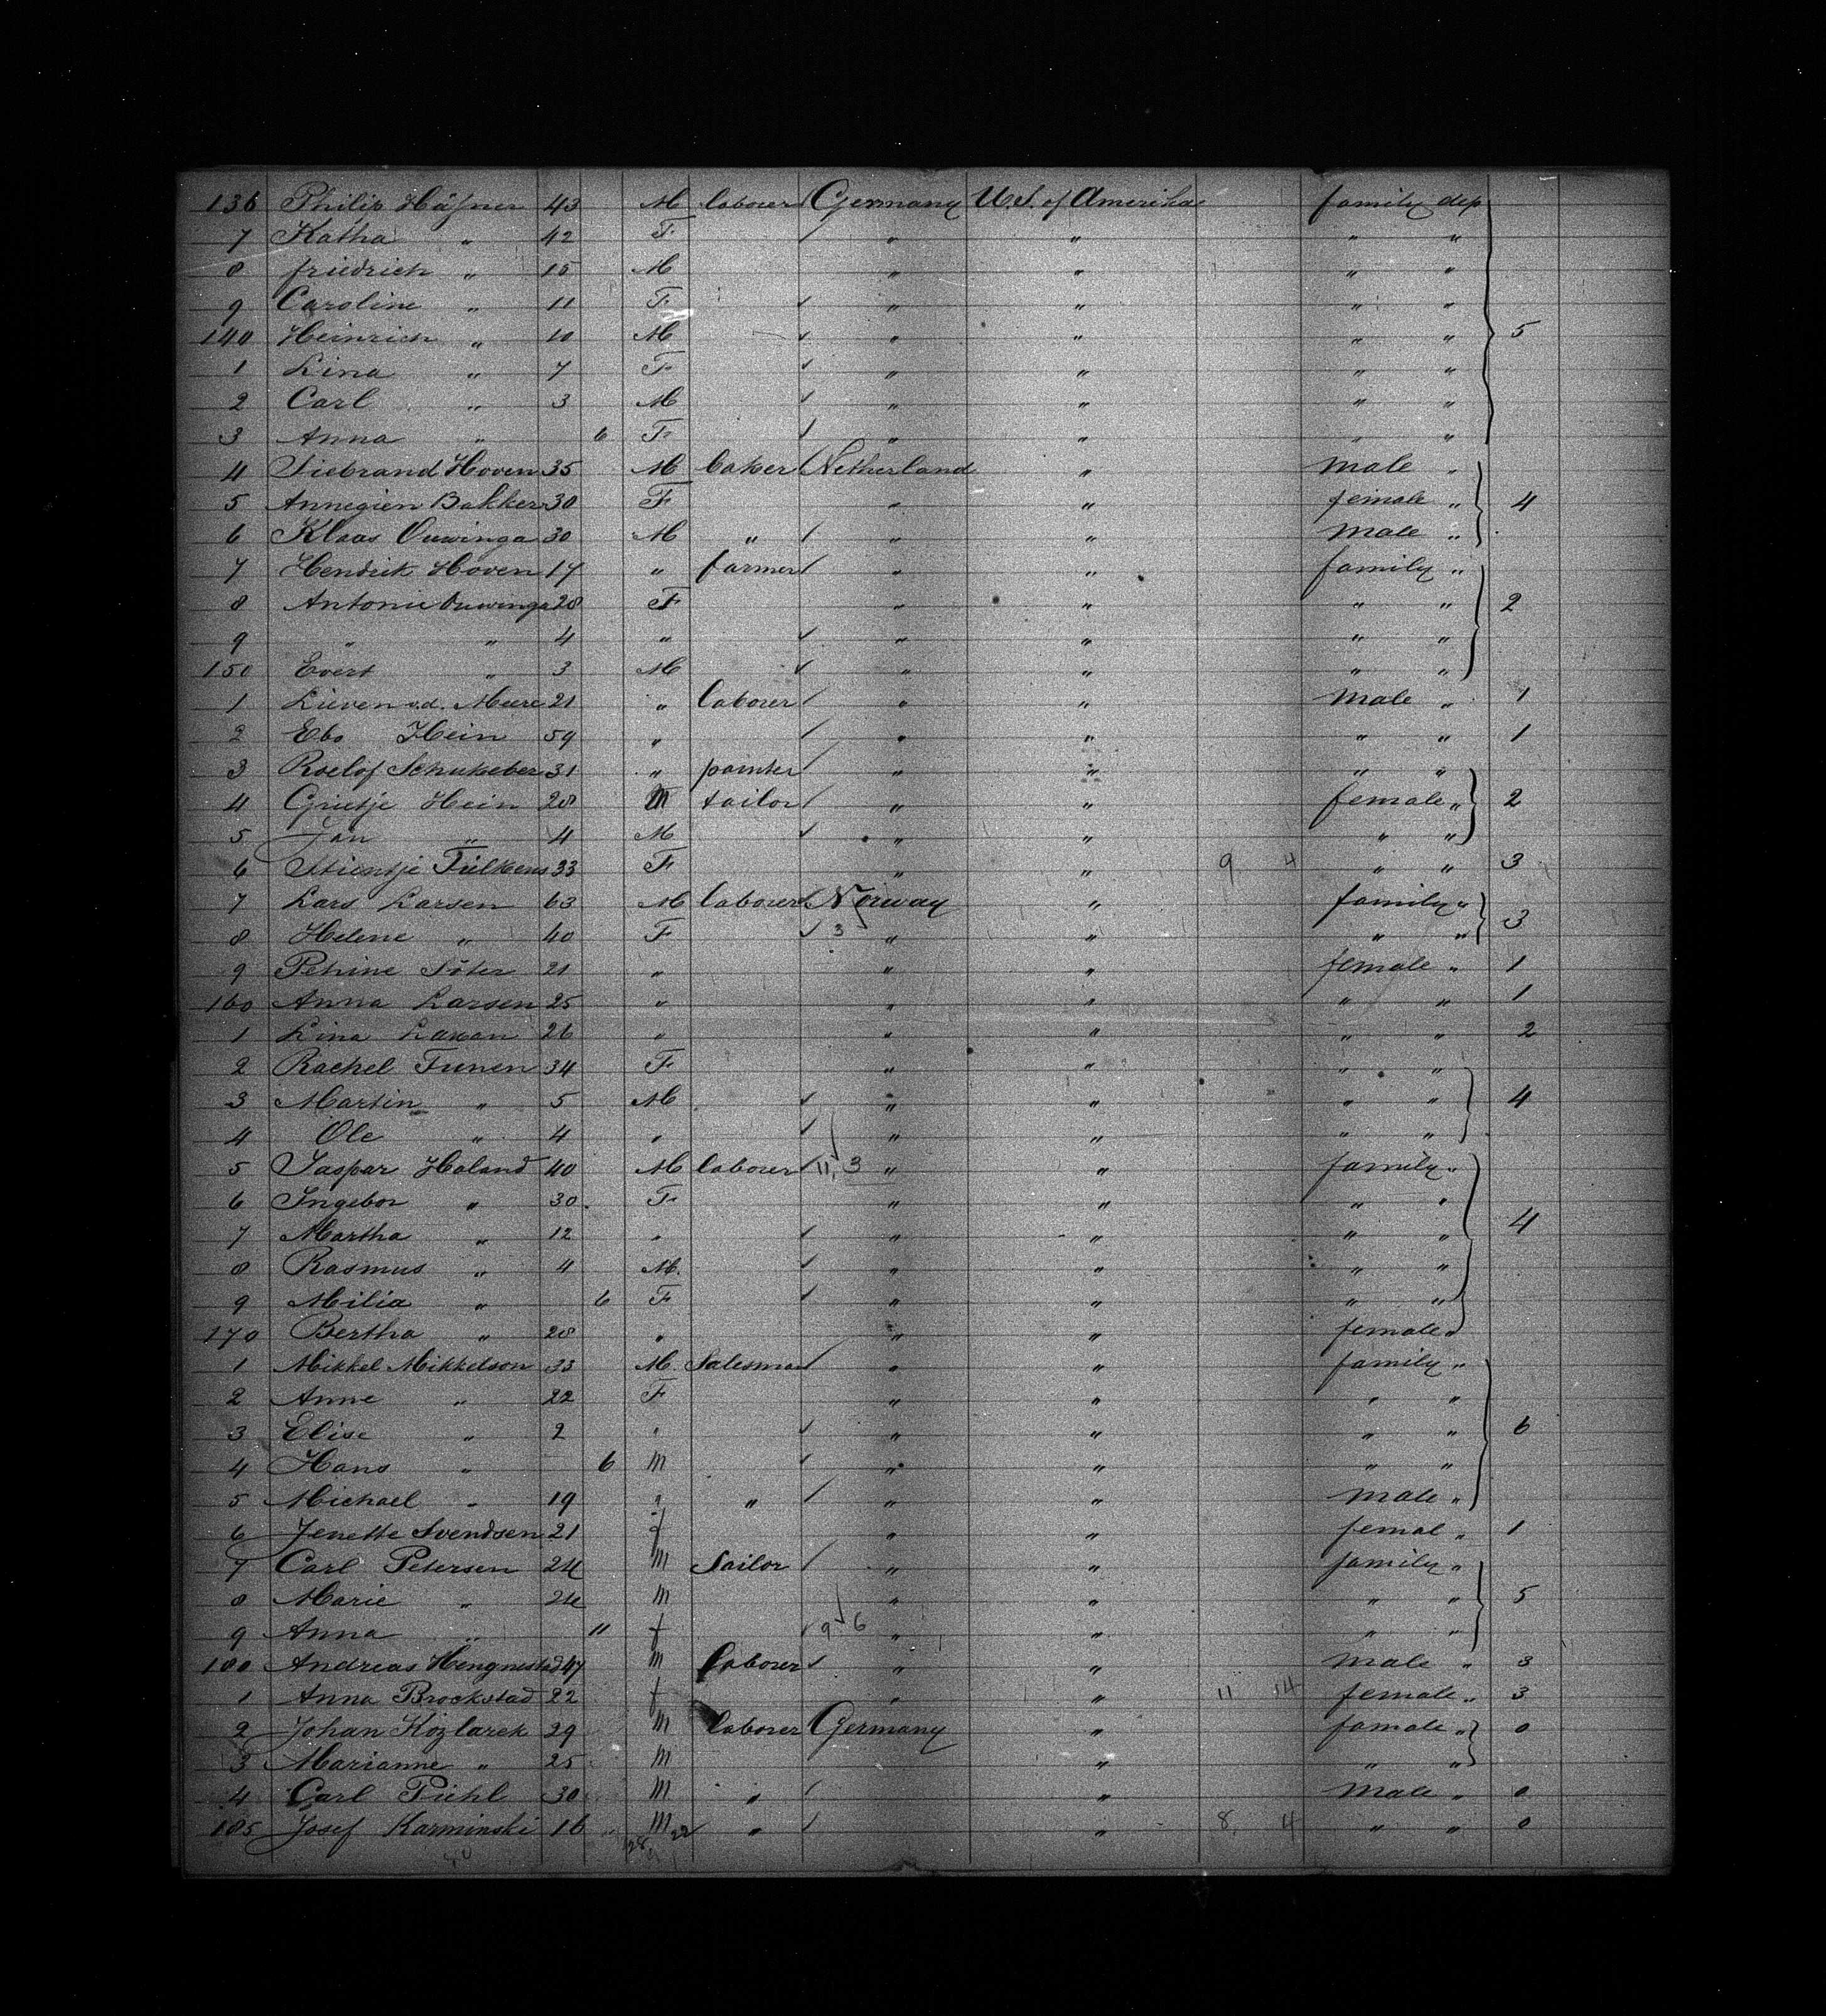 136 Philip Häfner 43 M laborer Germany U.S. of Amerika family dep
7 Katha " 42 F " " " "
8 friedrich " 15 M " " " "
9 Caroline " 11 F " " " "
140 Heinrich " 10 M " " " " 5
1 Lina " 7 F " " " "
2 Carl " 3 M " " " "
3 Anna " 6 F " " " "
4 Siebrand Hoven 35 M baker Netherland " male "
5 Annegien Bakker 30 F " " female " 4
6 Klaas Ouwinga 30 M " " " male "
7 Hendrik Hoven 17 " farmer " " family "
8 Antonie Ouwinga 28 F " " " " 2
9 " " 4 " " " " "
150 Evert " 3 M " " " "
1 Lieven v.d. Meere 21 " laborer " " male " 1
2 Ebo Hein 59 " " " " " 1
3 Roelof Schukeber 31 " painter " " " "
4 Grietje Hein 28 M tailor " " female " 2
5 Jan " 4 M " " " "
6 Stientje Tielkens 33 F " " 9 4 " " 3
7 Lars Larsen 63 M laborer Norway " family "
8 Helene " 40 F 3 " " " " 3
9 Petrine Söter 21 " " " female " 1
160 Anna Larsen 25 " " " " " 1
1 Lina 26 " " " " " 2
2 Rachel Funen 34 F " " " "
3 Martin " 5 M " " " " 4
4 Ole " 4 " " " " "
5 Jaspar Holand 40 M laborer 11, 3 " " family "
6 Ingebor " 30 F " " " "
7 Martha " 12 " " " " " 4
8 Rasmus " 4 M. " " " "
9 Milia " 6 F " " " "
170 Bertha " 28 " " " female "
1 Mikkel Mikkelson 33 M. Salesman " " family "
2 Anne " 22 F " " " "
3 Elise " 2 " " " " " 6
4 Hans " 6 M " " " "
5 Michael " 19 " " " " male "
6 Jenette Svendsen 21 f " " femal " 1
7 Carl Petersen 24 M Sailor " " family "
8 Marie " 24 M " " " " 5
9 Anna " 11 f 9 6 " " " "
180 Andreas Hengnestad 47 M laborer " " male " 3
1 Anna Brockstad 22 f " " 11 34 female " 3
2 Johan Kozlarek 29 M laborer Germany " famale " 0
3 Marianne " 25 M " " "
4 Carl Piehl 30 M " " male " 0
185 Josef Karminski 16 M " " 8, 4 " " 0
28 22